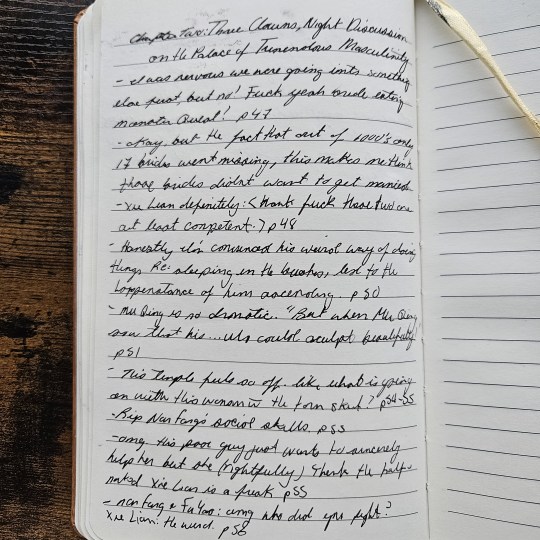 Chapter Two: Three Clowns, Night Discussion
on the Palace of Tremendous Masculinity
- I was nervous we were going into something
else first, but no! Fuck yeah bride eating
monster Quest! p47
- okay, but the fact that out of 1000's only
17 brides went missing, this makes me think
those brides didnt want to get married
- Xie Lian definitely: <thank fuck those two are
at least competent.> p48
- Honestly im convinced his weird way of doing
things, Re: sleeping in the bushes, led to the
happenstance of him ascending. p50
- Mu Qing is so dramatic. "But when Mu Qing
saw that his... was could sculpt beautifully
p51
- This temple feels so off. like, what is going
on with this woman w the torn skirt? p54-55
- Rip Nan Fang's social skills p55
- omg this poor guy just wants to sincerely
help her but she (rightfully) thinks the half-
naked Xie Lian is a freak p55
- nan Fang & Fu Yao: omg who did you fight?
Xie Lian: the wind. p56